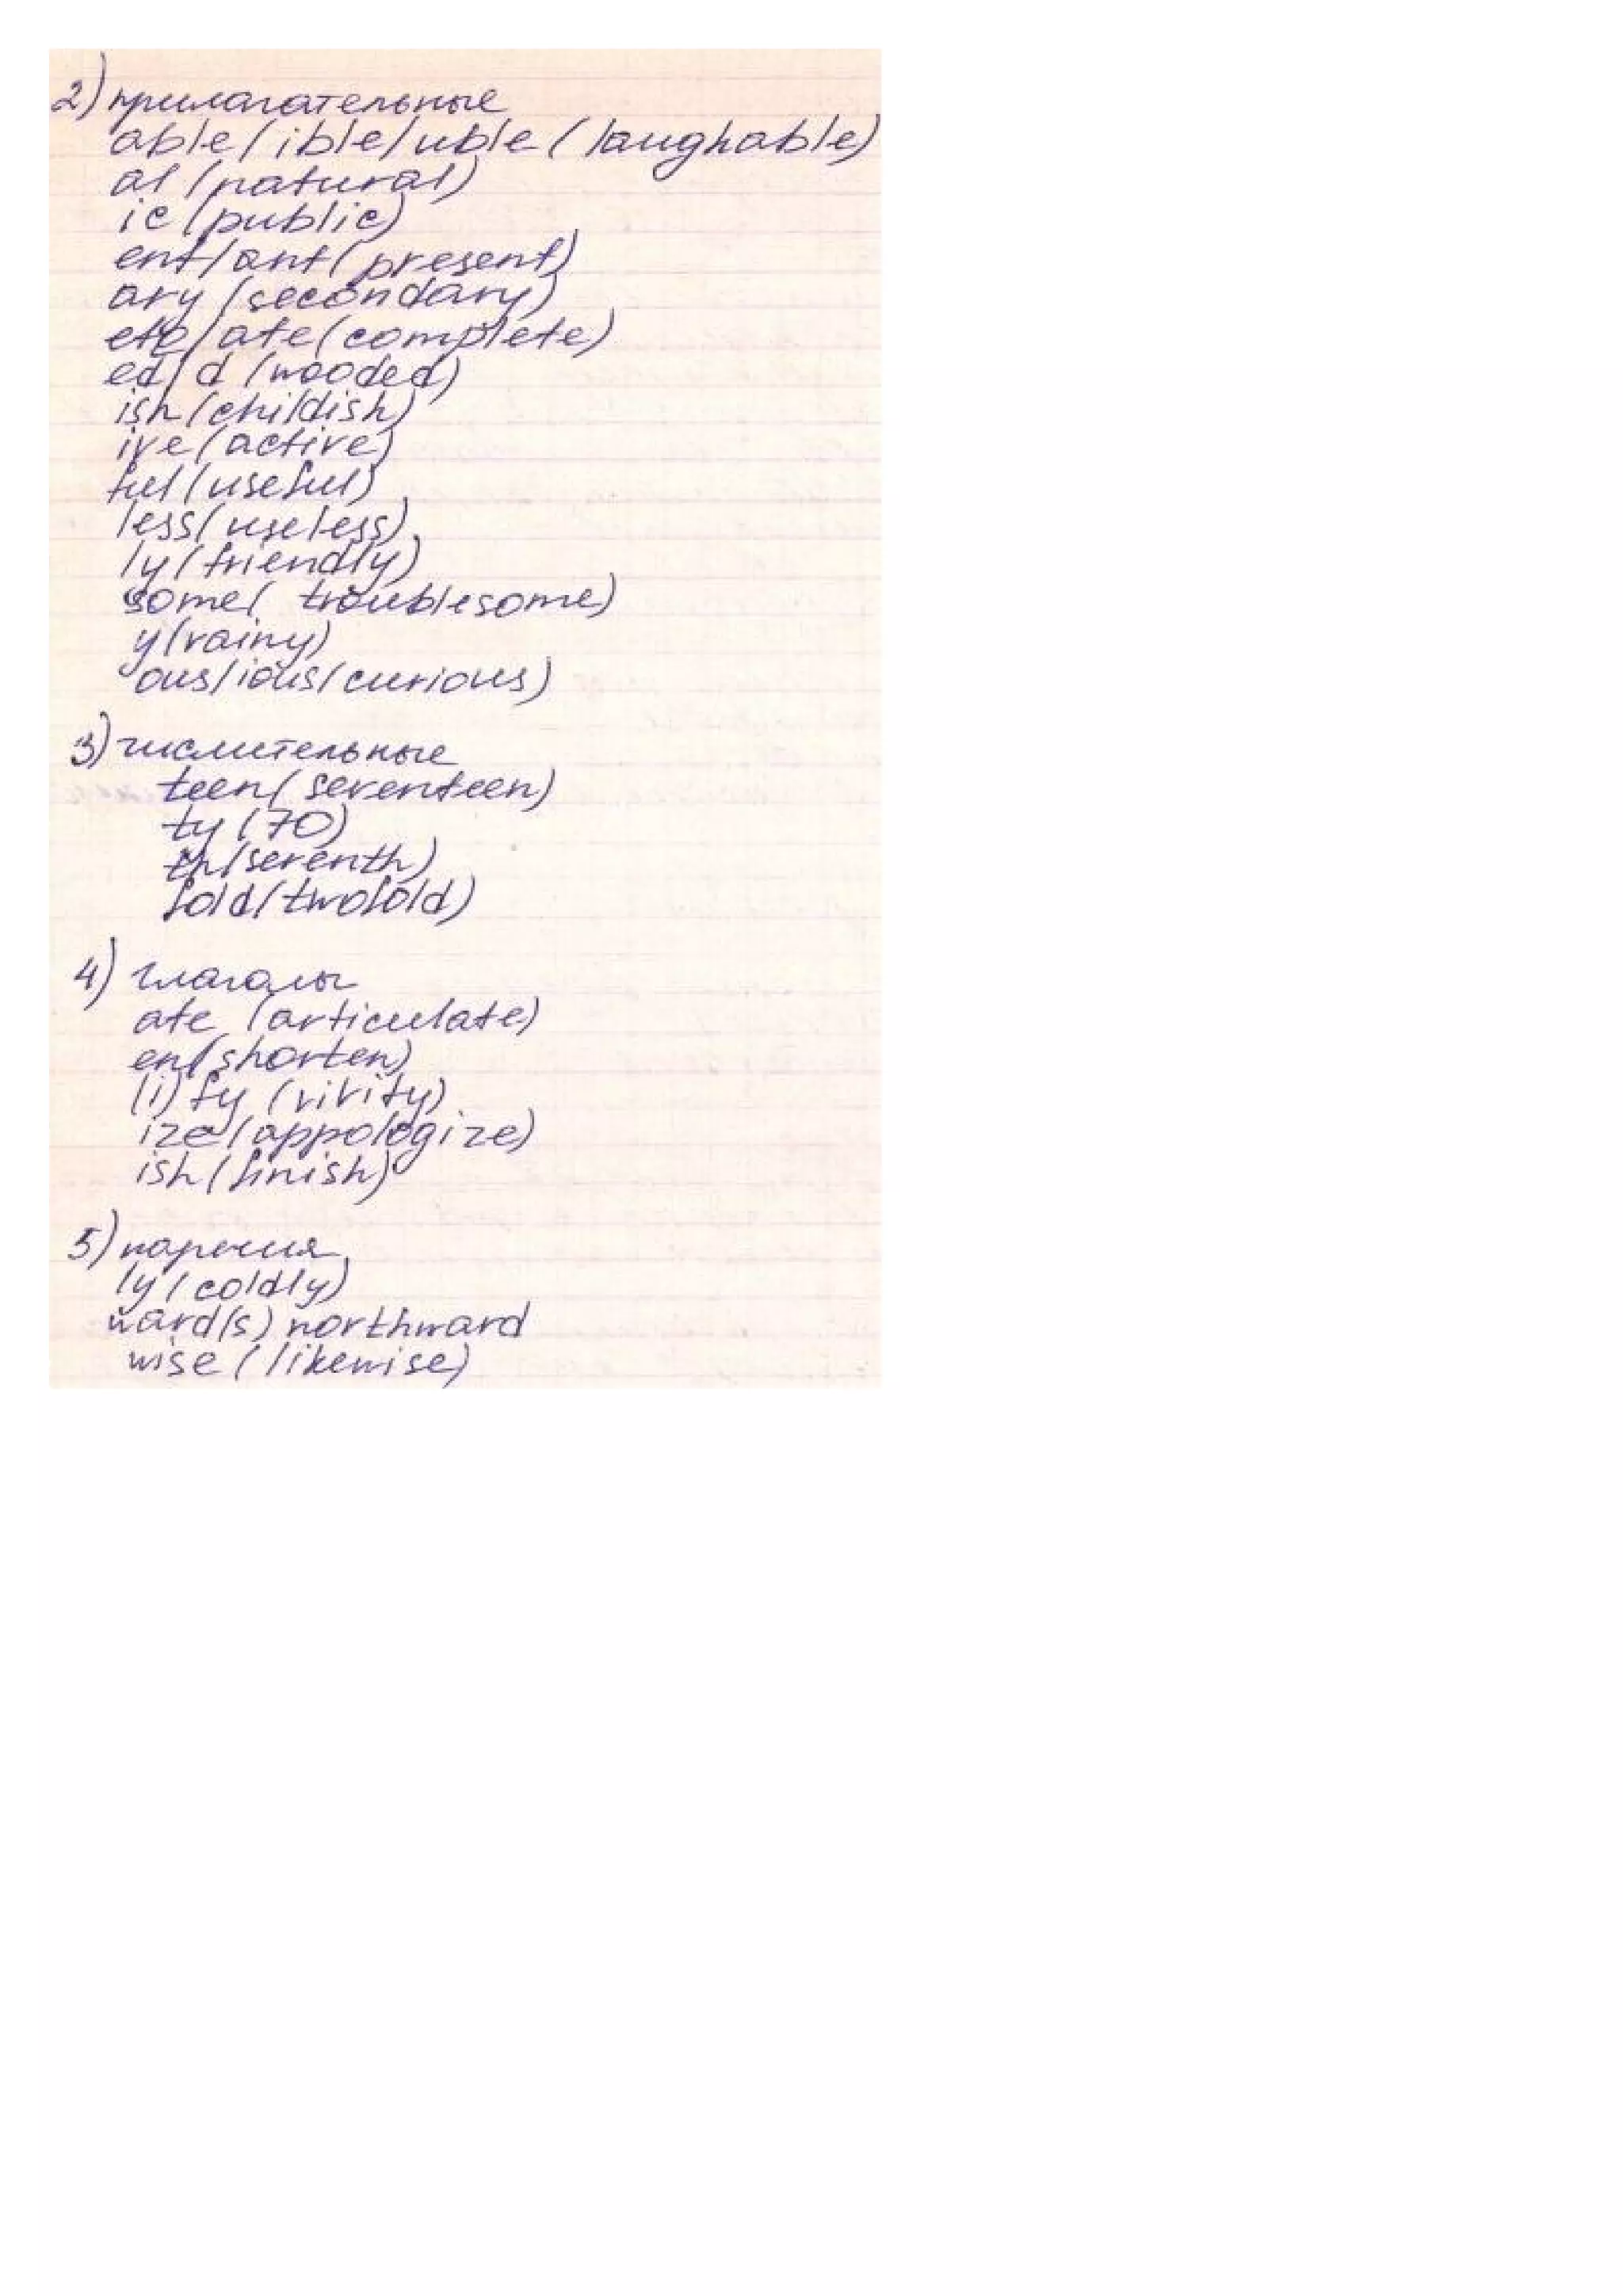 2) прилагательные
able/ible/uble (laughable)
al (natural)
ic (public)
ent/ant (present)
ary (secondary)
ete/ate (complete)
ed/d (wooded)
ish (childish)
ive (active)
ful (useful)
less (useless)
ly (friendly)
some (troublesome)
y (rainy)
ous/ious (curious)
3) числительные
teen (seventeen)
ty (70)
th (seventh)
fold (twofold)
4) глаголы
ate (articulate)
en (shorten)
(i)fy (vivify)
ize (appologize)
ish (finish)
5) наречия
ly (coldly)
ward(s) northward
wise (likewise)